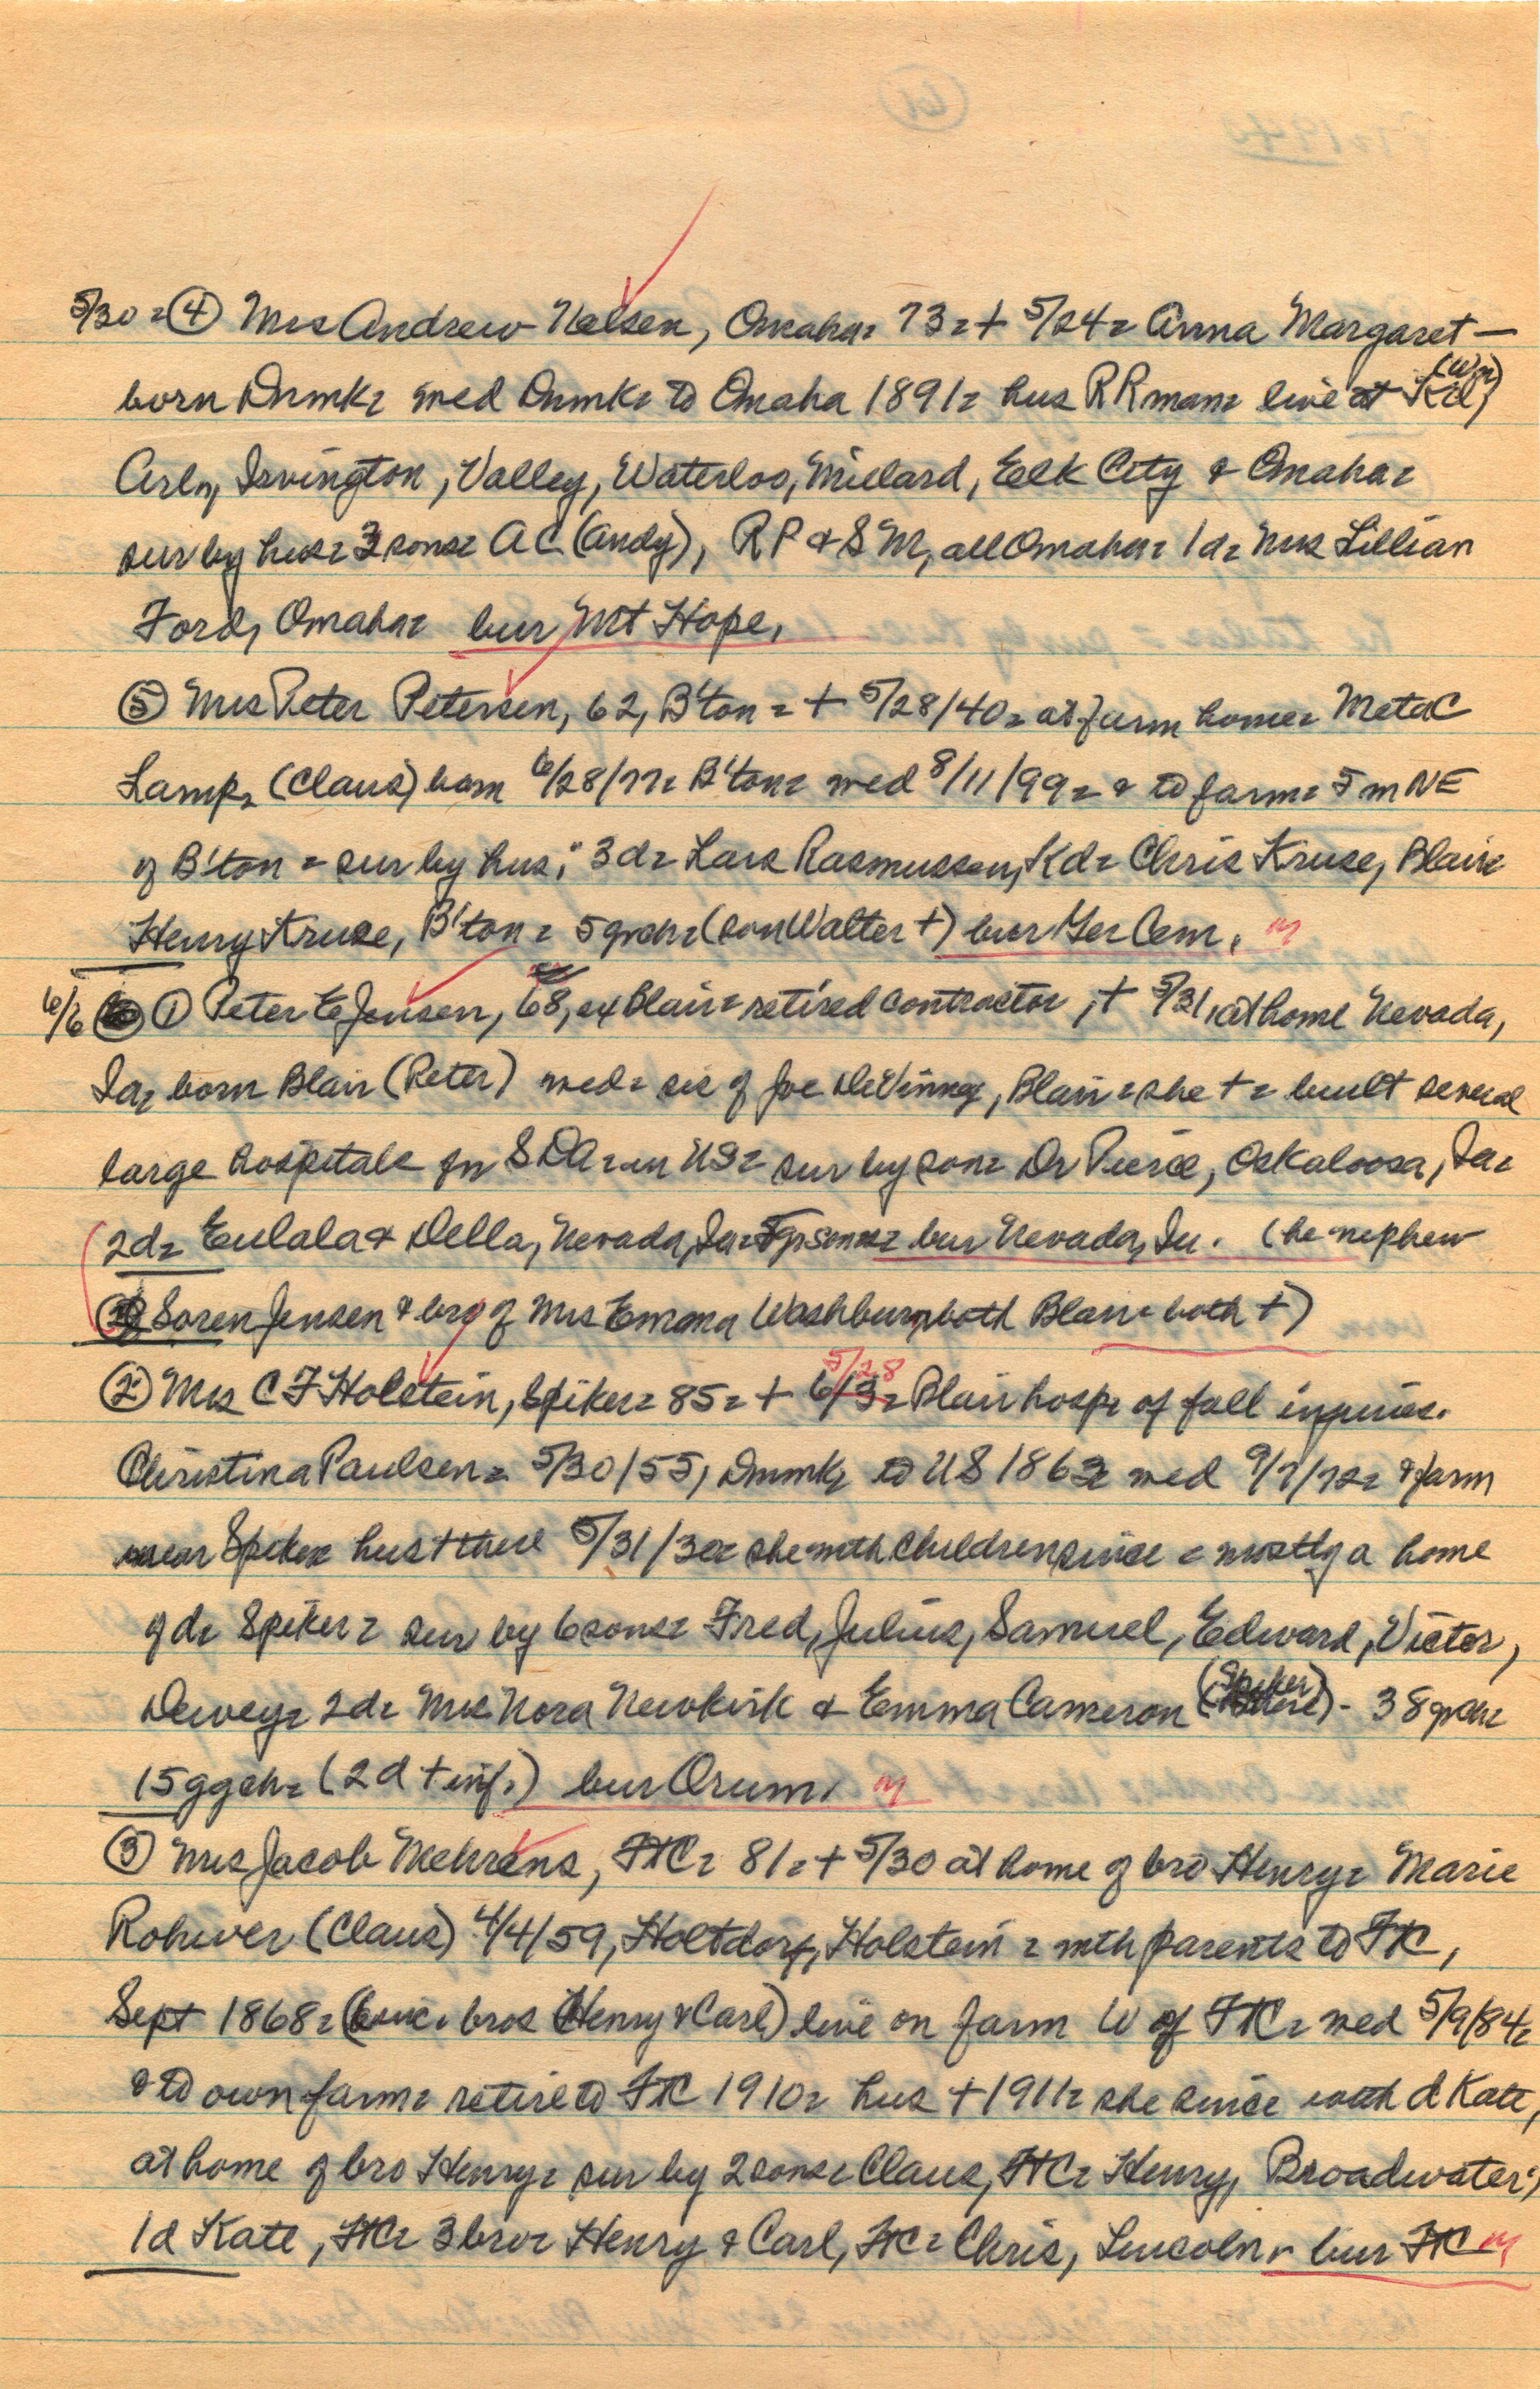 5/30 = ④ Mrs Andrew Nelsen, Omaha= 73= + 5/24= Anna Margaret —
born Dnmk= med Dnmk= to Omaha 1891= hus RRman= live at Kd, (Wn)
Arln, Irvington, Valley, Waterloo, Millard, Eelk City & Omaha=
sur by hus= 3 sons= A C (Andy), R P & S M, all Omaha= 1d= Mrs Lillian
Ford, Omaha= bur Mt Hope,
⑤ Mrs Peter Petersen, 62, B'ton = + 5/28/40= at farm home= Meta C
Lamp, (Claus) born 6/28/77= B'ton= med 8/11/99= & to farm= 5 m NE
of B'ton = sur by hus; 3d= Lars Rasmussen, Kd= Chris Kruse, Blair=
Henry Kruse, B'ton = 5 grch= (son Walter +) bur Ger Cem. m
6/6 ① Peter E Jensen, 68, ex Blair= retired contractor, + 5/31, at home Nevada,
Ia= born Blair (Peter) med= sis of Joe DeVinney, Blair= she += built several
large hospitals for SDA= in US= sur by son= Dr Pierce, Oskaloosa, Ia=
2d= Eulala & Della, Nevada, Ia= 5 grsons= bur Nevada, Ia. (he nephew
Soren Jensen & bro of Mrs Emma Washburn, both Blair= both +)
② Mrs C F Holstein, Spiker= 85= + 6/3= 5/28 Blair hosp= of fall injuries.
Christina Paulsen= 5/30/55, Dnmk, to US 1863= med 9/7/72= & farm
near Spiker= hus + there 5/31/30= she mth children since = mostly a home
of d= Spiker= sur by 6 sons= Fred, Julius, Samuel, Edward, Victor,
Dewey= 2d= Mrs Nora Newkirk & Emma Cameron (Spiker) - 38 grch=
15 ggch= (2 d + inf.) bur Orum. m
③ Mrs Jacob Mehrens, FtC= 81= + 5/30 at home of bro Henry= Marie
Rohwer (Claus) 4/4/59, Holtdorf, Holstein = mth parents to FtC,
Sept 1868= ( bros Henry & Carl) live on farm W of FtC= med 5/9/84=
& to own farm= retire to FtC 1910= hus + 1911= she since with d Kate,
at home of bro Henry= sur by 2 sons= Claus, FtC= Henry, Broadwater;
1d Kate, FtC= 3 bro= Henry & Carl, FtC= Chris, Lincoln= bur FtC m